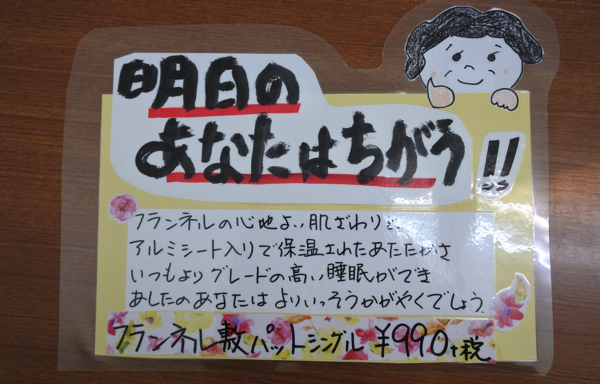 明日の
あなたはちがう!!
フランネルの心地よい肌ざわりと、
アルミシート入りで保温されたあたたかさ
いつもよりグレードの高い睡眠ができ
あしたのあなたはよりいっそうかがやくでしょう。
フランネル敷パットシングル ¥990+税